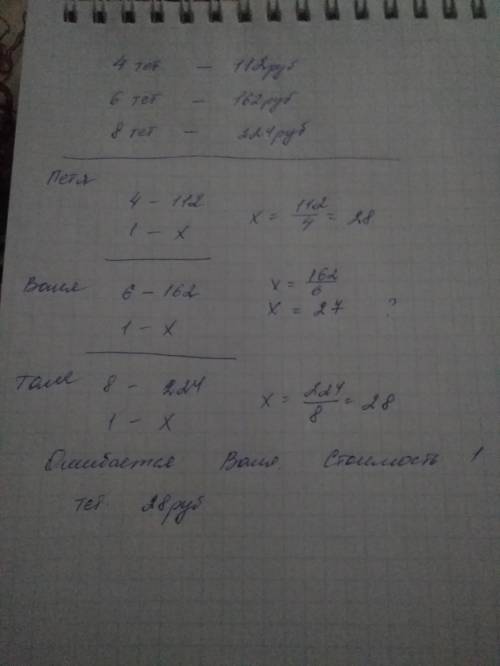 4 тет — 112руб
6 тет — 162руб
8 тет — 224руб
Петя
4 — 112
1 — x
x = 112/4 = 28
Ваня
6 — 162
1 — x
x = 162/6
x = 27 ?
Толя
8 — 224
1 — x
x = 224/8 = 28
Ошибается Ваня. Стоимость 1
тет 28руб